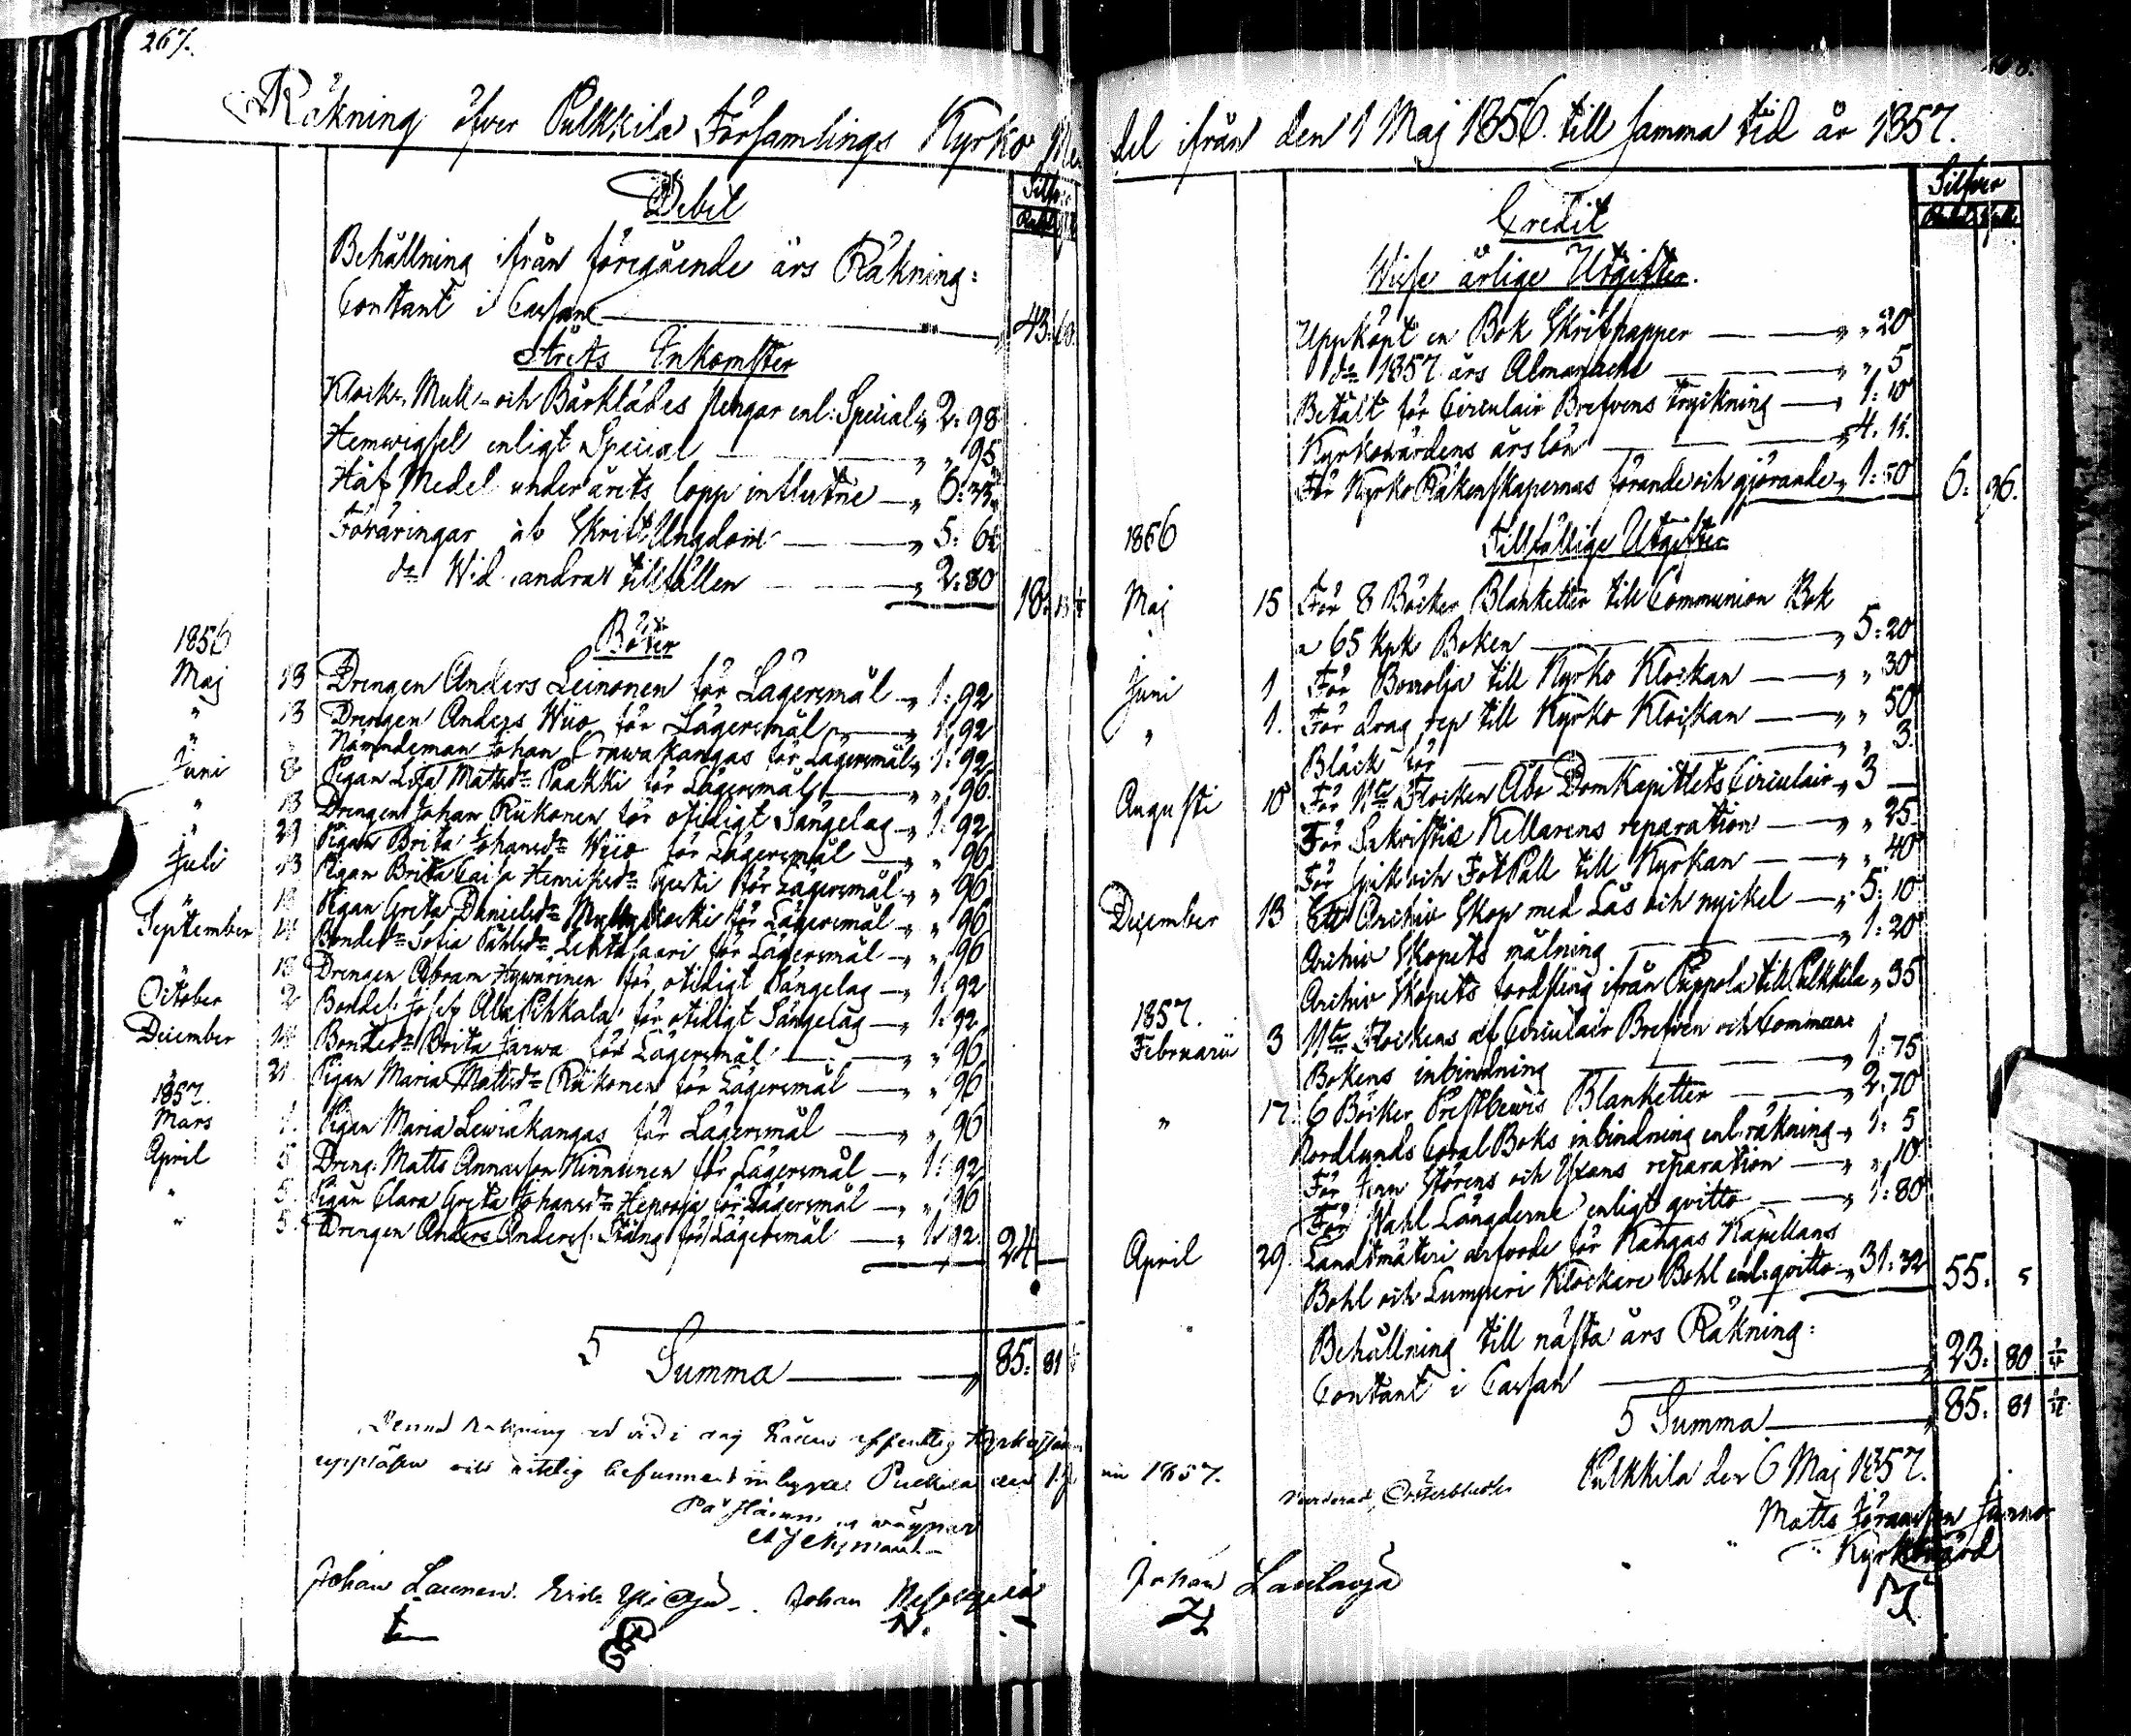 267.
Räkning öfver Pulkkila Församlings Kyrko Me
Debet
Silfver
Behållning ifrån föregående års Räkning:
Contant i Cassan 43: 68
Årets Inkomster
Klock-, Mull- och Bårklädes pengar enl: Special " 2: 98
Hemvigsel enligt Special " " 95
Håf Medel under årets lopp influtne " 6:
Föräringar af Skrift Ungdom " 5: 6
do Wid andra tillfällen " 2: 80
18: 13
Böter
1856
Maj 13 Drengen Anders Leinonen för Lägersmål " 1: 92
" 13 Drengen Anders Wiio för Lägersmål " 1: 92
" " Nämndeman Johan kangas för Lägersmål " 1: 92
Juni 8 Pigan Lisa Mattsdr Paakki för Lägersmål " " 96
" 13 Drengen Johan Riikonen för otidigt Sängelag " 1: 92
29 Pigan Brita Johansdr Wiio för Lägersmål " " 96
Juli 13 Pigan Brita Caisa Henriksdr för Lägersmål " " 96
" 13 Pigan Greta Danielsdr för Lägersmål " " 96
September 14 Bondedr Sofia Lehtosaari för Lägersmål " " 96
" 18 Drengen Abram Hyvärinen för otidigt Sängelag " 1: 92
October 2 Bondes: Josef Ala Pihkala för otidigt Sängelag " 1: 92
December 14 Bondedr Brita Jarva för Lägersmål " " 96
21 Pigan Maria Mattsdr Riikonen för Lägersmål " " 96
1857.
Mars 1. Pigan Maria Leiviäkangas för Lägersmål " " 96
April 5 Dreng: Matts Annasson Kinnunen för Lägersmål " 1: 92
" 5. Pigan Clara Greta Johansdr Hepooja för Lägersmål " " 96
" 5. Drengen Anders Anderss: Stång för Lägersmål " 1: 92
24 —
Summa " 85: 81
Denna Räkning är vid i dag hållen offentlig Kyrkostämma
uppläsen och riktig befunnen
Johan Launonen. Johan
del ifrån den 1 Maj 1856. till samma tid år 1857.
Credit
Silfver
Wisse årlige Utgifter.
Uppköpt en Bok Skrifpapper " " 20
do 1857 års Almanach " " 5
Betalt för Circulair Brefvens tryckning " 1: 10
Kyrkovärdens årslön " 4: 11.
För Kyrko Räkenskapernas förande och gjörande " 1: 50
6: 96.
Tillfällige Utgifter
1856
Maj 15 För 8 Böcker Blanketter till Communion Bok
a 65 kpk Boken " 5: 20
Juni 1 För Bomolja till Kyrko Klockan " " 30
" 1. För drag rep till Kyrko Klockan " " 50
Bläck för " " 3.
Augusti 10 För 11te Flocken Åbo Domkapittlets Circulair " 3 —
För Sakristie Kellarens reparation " " 25
För Spik och Fot Pall till Kyrkan " " 40
December 13 Ett Archiv Skop med Lås och nyckel " 5: 10
Archiv Skopets målning " 1: 20
Archiv Skopets fordsling ifrån Piippola till Pulkkila " 35
1857.
Februarii 3 11te Flockens af Circulair Brefven och
Bokens inbindning " 1: 75
" 17. 6 Böcker Prestbewis Blanketter " 2: 70
Nordlunds Coral Boks inbindning enl: räkning " 1: 5
För Jern Störens och Yxans reparation " " 10
För Wahl Längderne enligt qvitto " 1: 80
April 29. Landtmäteri arfvode för Kangas Kapellans
Bohl och Lumperi Klockare Bohl enl: qvitto " 31: 32
55: 5
Behållning till nästa års Räkning:
Contant i Cassan " 23: 80
Summa " 85: 81
Pulkkila den 6 Maj 1857.
Matts
Kyrkovärd
1857.
Johan Laulaoja